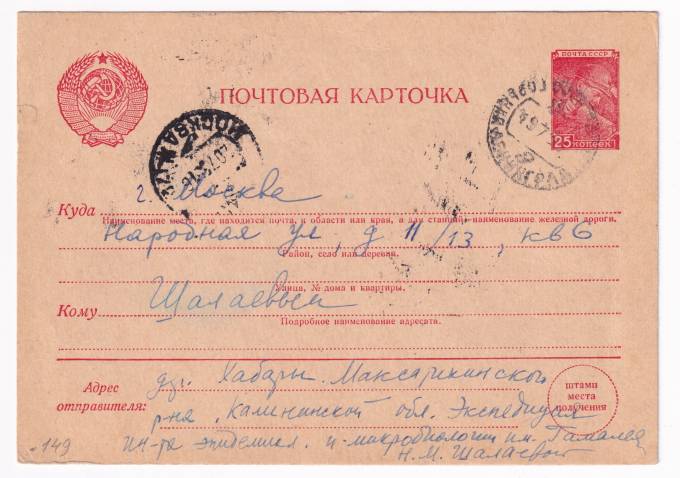 ПОЧТА СССР
25 КОПЕЕК
ПОЧТОВАЯ КАРТОЧКА
МОСКВА
г. Москва
Куда
Наименование места, где находится почта, и области или края, а для станций наименование железной дороги.
Народная ул, д 11/13, кв 6
Район, село или деревня.
Улица, № дома и квартиры.
Шалаевым
Кому
Подробное наименование адресата.
Адрес отправителя:
дер. Хабары. Максатихинской
р-на, Калининской обл. Экспедиция
ин-та эпидемиол. и микробиологии им. Гамалеи
Н. М. Шалаевой
штамп
места
получения
149